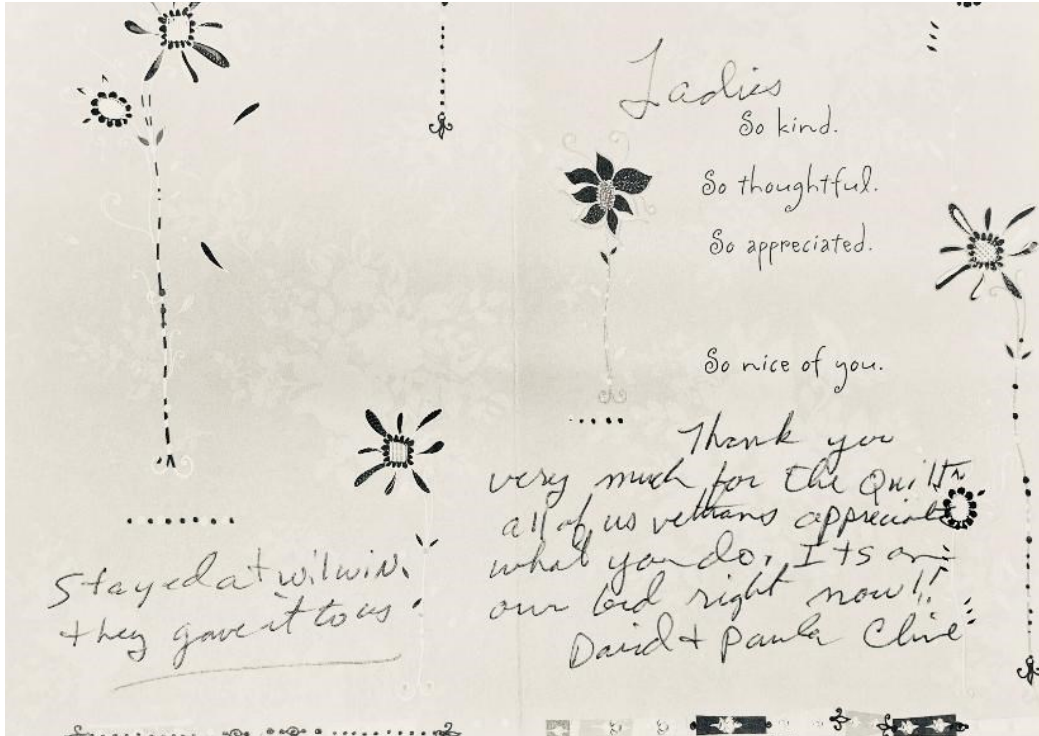 Stayed at wilwin.
they gave it to us!
Ladies
So kind.
So thoughtful.
So appreciated.
So nice of you.
Thank you
very much for the Quilt
all of us vetrans appreciate
what you do. Its on
our bed right now!!
David + Paula Cline